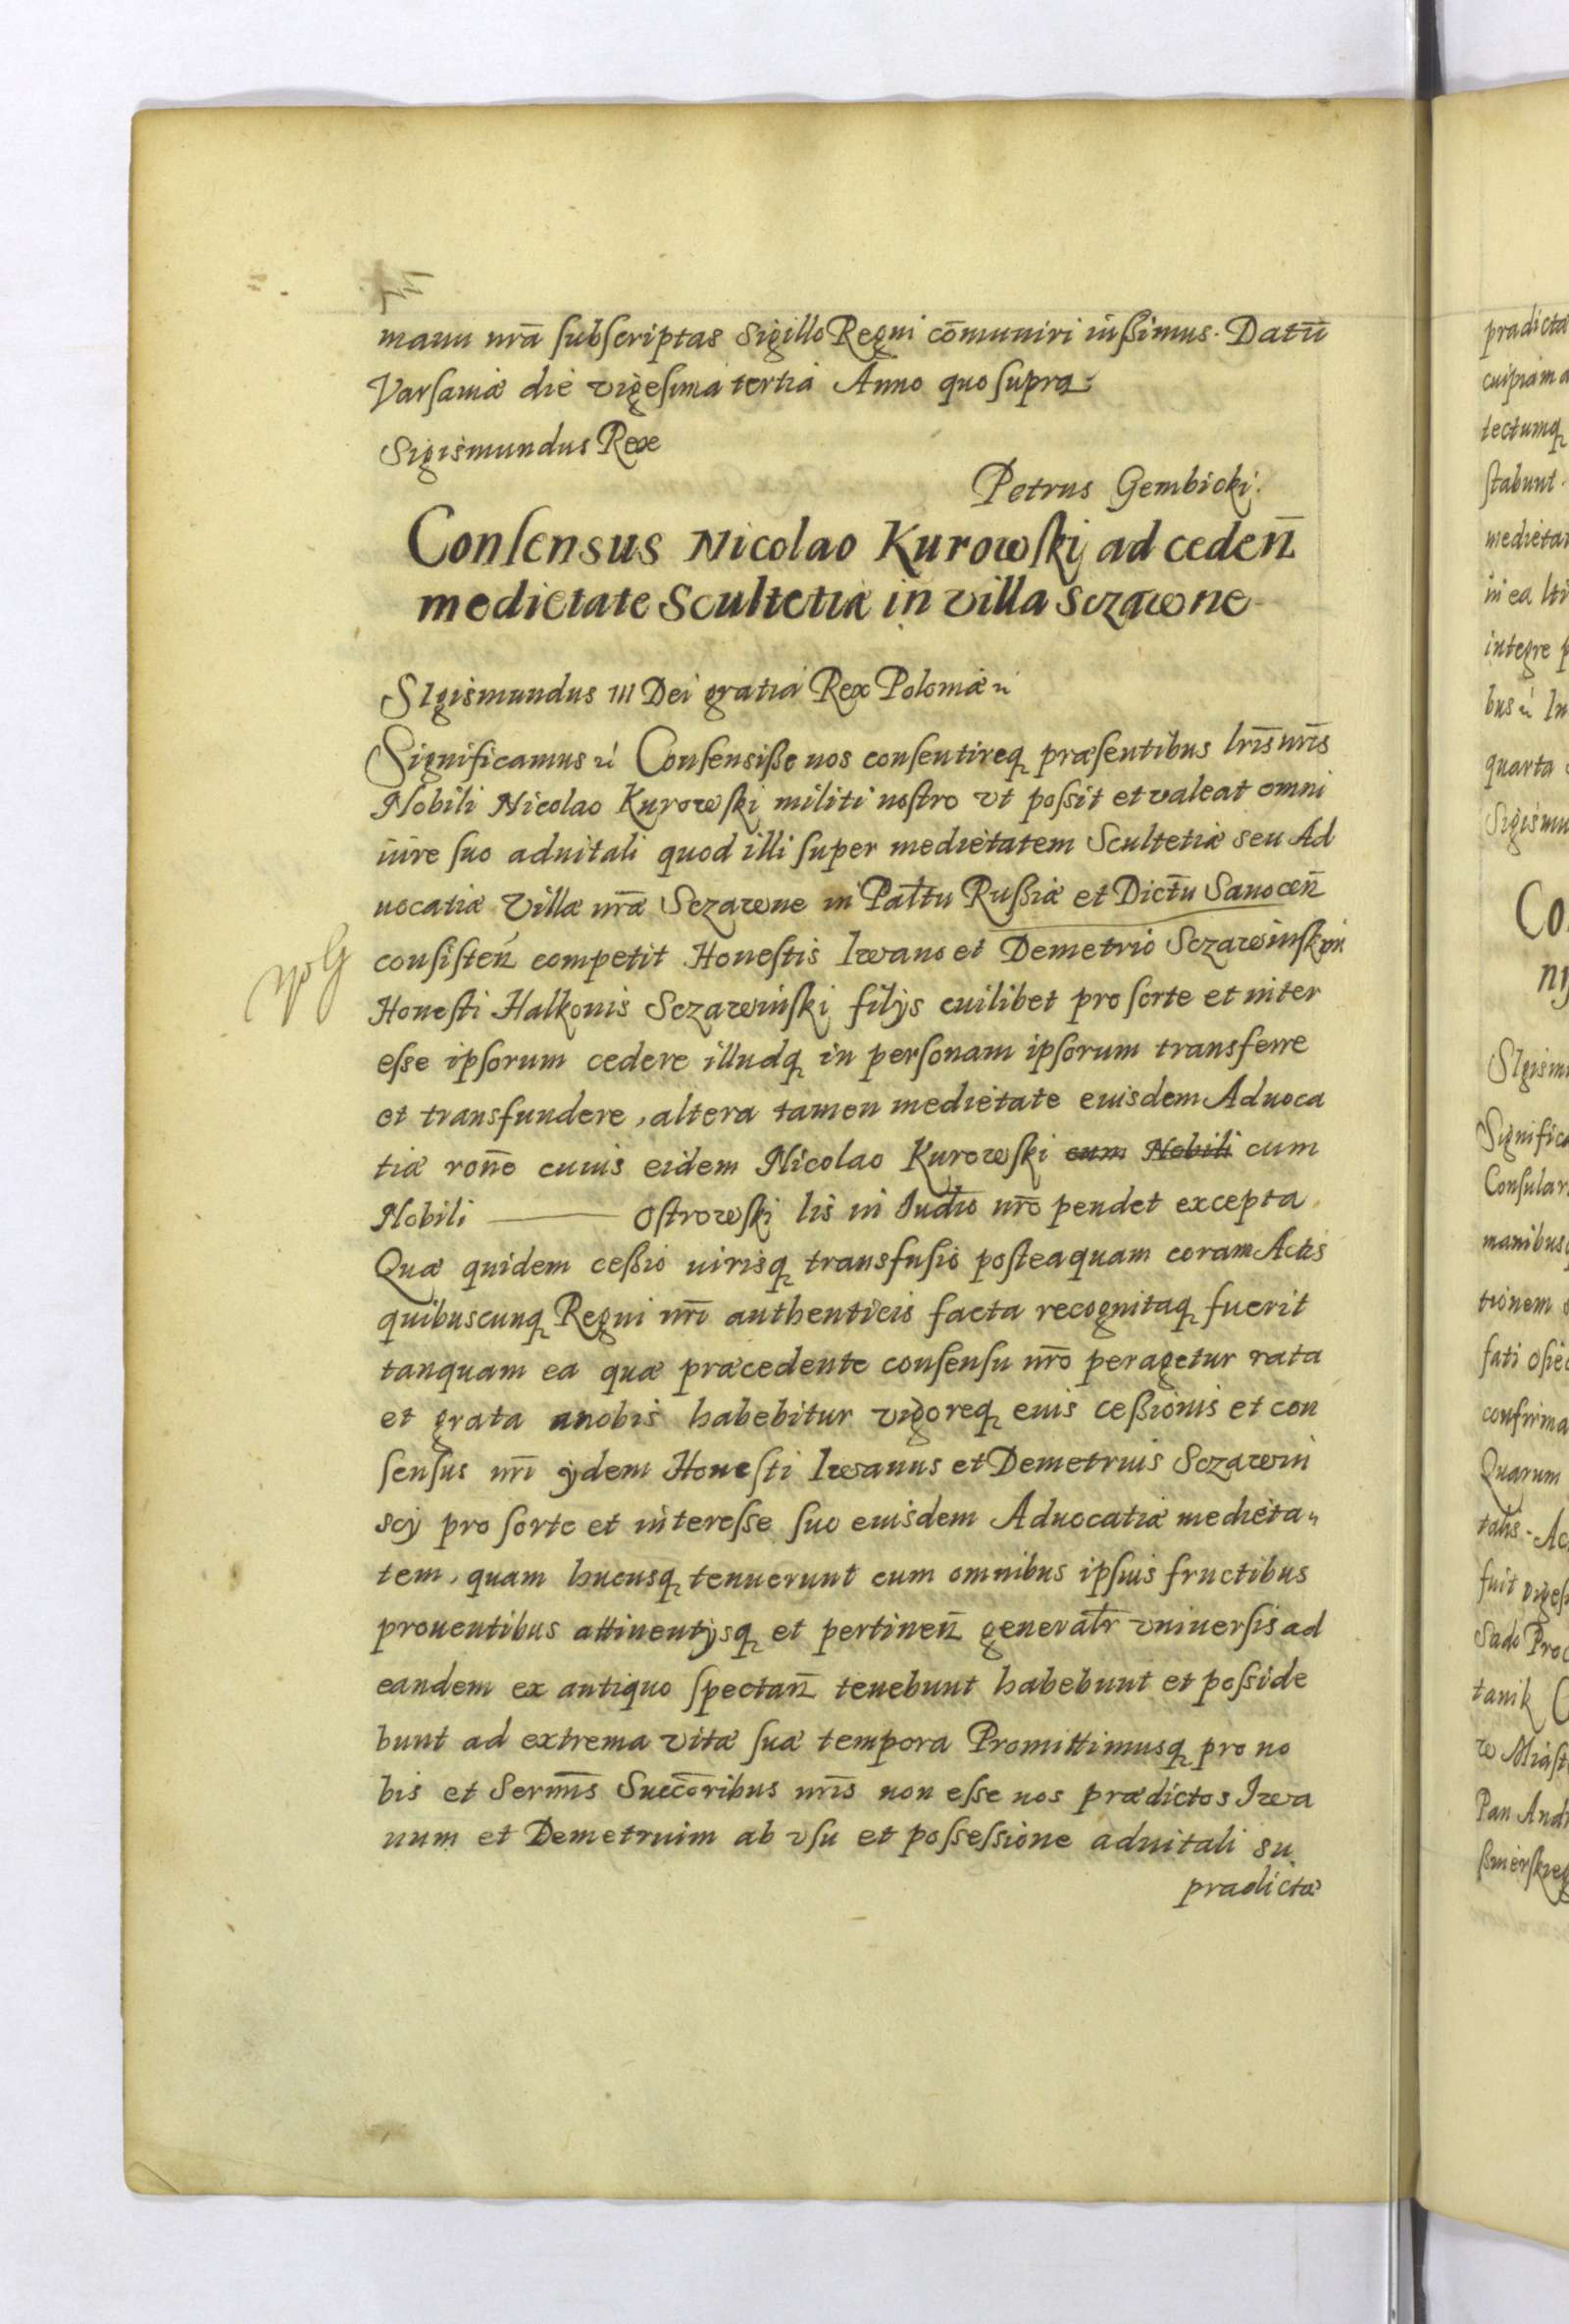 manu nr̄a subscriptas Sigillo Regni cōmuniri iussimus. Datū
Varsaviæ die vigesima tertia Anno quo supra
Sigismundus Rex
Petrus Gembicki.
Consensus Nicolao Kurowski ad ceden̄
medietate Scultetiæ in villa Sczawne
SIgismundus III Dei gratia Rex Poloniæ
Significamus Consensisse nos consentireq præsentibus lr̄is nr̄is
Nobili Nicolao Kurowski militi nostro vt possit et valeat omni
iure suo aduitali quod illi super medietatem Scultetiæ seu Ad
uocatiæ Villæ nr̄æ Sczawne in Pal̄tu Russiæ et Dict̄u Sanocen̄
consisten̄ competit Honestis Iwano et Demetrio Sczawinskim
Honesti Halkonis Sczawinski filijs cuilibet pro sorte et inter
esse ipsorum cedere illudq in personam ipsorum transferre
et transfundere, altera tamen medietate eiusdem Aduoca
tiæ ron̄e cuius eidem Nicolao Kurowski cum Nobili cum
Nobili ——— Ostrowski lis in Iud̄io nr̄o pendet excepta
Quæ quidem cessio iurisq transfusio posteaquam coram Actis
quibuscunq Regni nr̄i authenticis facta recognitaq fuerit
tanquam ea quæ præcedente consensu nr̄o peragetur rata
et grata a nobis habebitur vigoreq eius cessionis et con
sensus nr̄i ijdem Honesti Iwanus et Demetrius Sczawin
scij pro sorte et interesse suo eiusdem Aduocatiæ medieta„
tem, quam hucusq tenuerunt cum omnibus ipsius fructibus
prouentibus attinentijsq et pertinen̄ generalr̄ vniuersis ad
eandem ex antiquo spectan̄ tenebunt habebunt et posside
bunt ad extrema vitæ suæ tempora Promittimusq pro no
bis et Serm̄is Succ̄oribus nr̄is non esse nos prædictos Iwa
num et Demetrium ab vsu et possessione aduitali su
prædictæ
pradicta
cuipiam a
tectumq
stabunt
medietat
in ea
integre p
bus In
quarta
Sigismu
Co
SIgism
Signific
Consular
manibusq
tionem
fati
confirma
Quarum
talis. Ac
fuit viges
Sado Proc
tanik
w Miast
Pan Andr